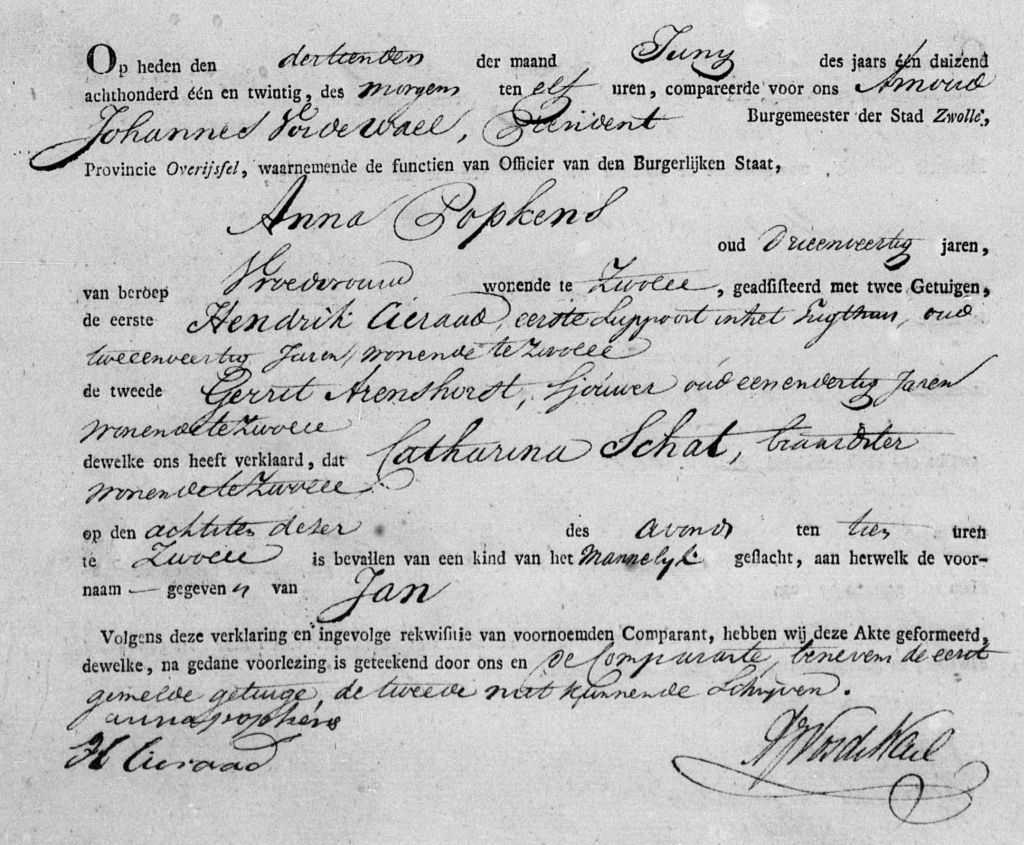 Op heden den dertienden der maand Juny des jaars één duizend
achthonderd één en twintig, des morgens ten elf uren, compareerde voor ons Arnoud
Johannes Vos de Wael, President Burgemeester der Stad Zwolle,
Provincie Overijssel, waarnemende de functien van Officier van den Burgerlijken Staat,
Anna Popkens
oud Drieenveertig jaren,
van beroep Vroedvrouw wonende te Zwolle, geadsisteerd met twee Getuigen,
de eerste Hendrik Cieraad, eerste Suppoost in het Tugthuis, oud
tweeenveertig Jaren, wonende te Zwolle
de tweede Gerrit Arenshorst, Sjouwer oud eenenvertig Jaren
wonende te Zwolle
dewelke ons heeft verklaard, dat Catharina Schat,
wonende te Zwolle
op den achtsten dezer des avonds ten tien uren
te Zwolle is bevallen van een kind van het Mannelyk geslacht, aan hetwelk de voor-
naam — gegeven is van Jan
Volgens deze verklaring en ingevolge rekwisitie van voornoemden Comparant, hebben wij deze Akte geformeerd,
dewelke, na gedane voorlezing is geteekend door ons en de Comparante, benevens de eerst
gemelde getuige, de tweede niet kunnende Schrijven.
anna popkens
H Cieraad
AJ Vos de Wael